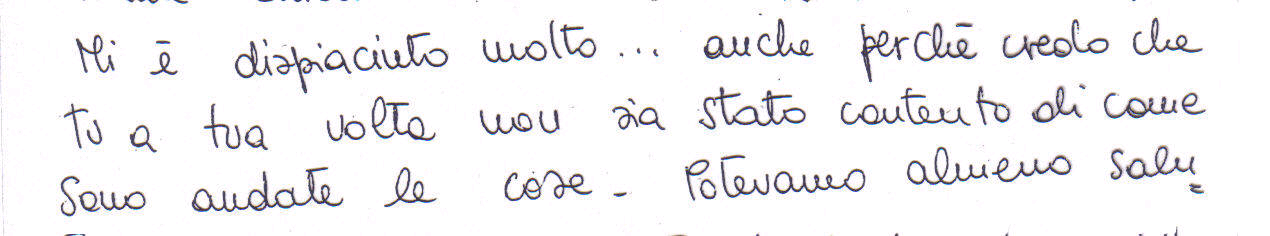 Mi è dispiaciuto molto... anche perchè credo che
tu a tua volta non sia stato contento di come
sono andate le cose - Potevamo almeno salu=